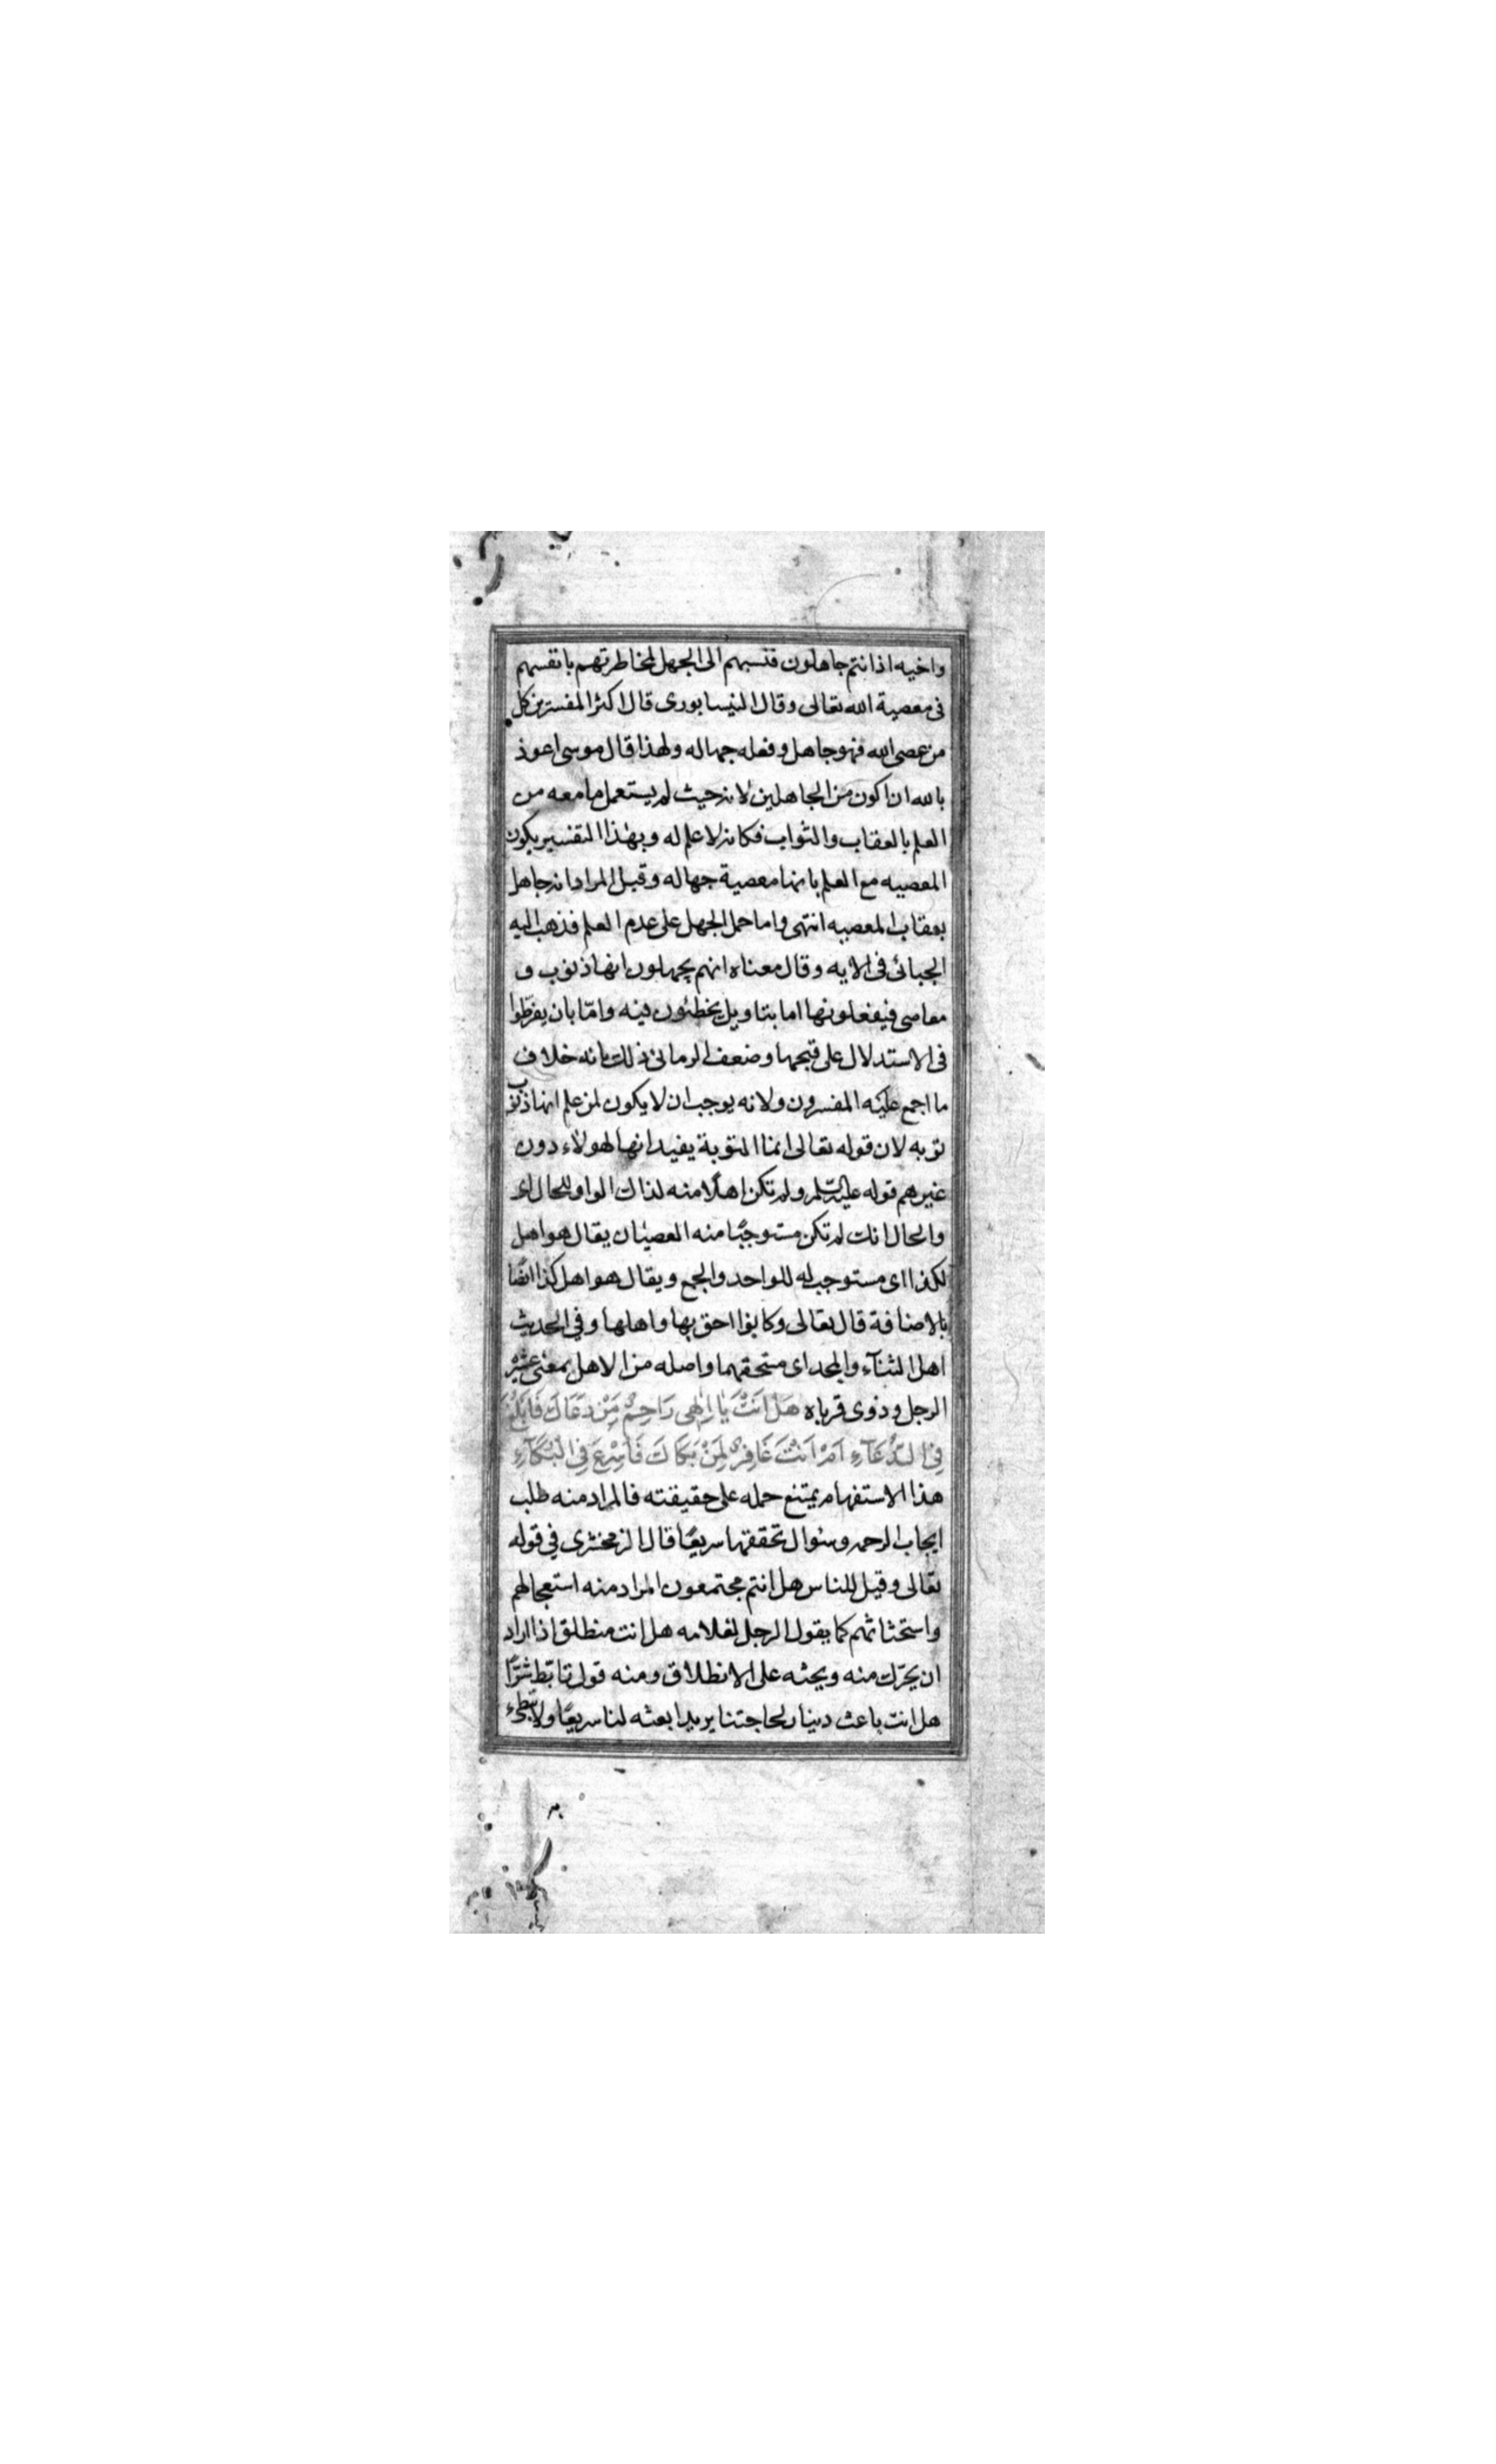 واخيه اذ انتم جاهلون فنسبهم الى الجهل لمخاطرتهم بانفسهم
فى معصية الله تعالى وقال النيسابورى قال اكثر المفسرين كل
من عصى الله فهو جاهل وفعله جهاله ولهذا قال موسى اعوذ
بالله ان اكون من الجاهلين لانه حيث لم يستعمل ما معه من
العلم بالعقاب والثواب فكانه لا علم له وبهذا التفسير يكون
المعصيه مع العلم بانها معصية جهاله وقيل المراد انه جاهل
بعقاب المعصيه انتهى واما حمل الجهل على عدم العلم فذهب اليه
الجبائى فى الايه وقال معناه انهم يجهلون انها ذنوب و
معاصى فيفعلونها اما بتاويل يخطئون فيه وامّا بان يفرّطوا
فى الاستدلال على قبحها وضعف الرمانى ذلك بانه خلاف
ما اجمع عليه المفسرون ولانه يوجب ان لا يكون لمن علم انها ذنوب
توبه لان قوله تعالى انما التوبة يفيد انها لهولاء دون
غيرهم قوله عليه السّلم ولم تكن اهلًا منه لذاك الواو للحال اى
والحال انك لم تكن مستوجبًا منه العصيان يقال هو اهل
لكذا اى مستوجب له للواحد والجمع ويقال هو اهل كذا ايضًا
بالاضافة قال تعالى وكانوا احق بها واهلها وفى الحديث
اهل الثنآء والمجد اى مستحقهما واصله من الاهل بمعنى عشيرة
الرجل وذوى قرباه هَلْ اَنْتَ يَا اِلٰهى رَاحِمٌ مَنْ دَعَاكَ فَاُبْلِغَ
فِى الدُّعَآءِ اَمْ اَنْتَ غَافِرٌ لِمَنْ بَكَاكَ فَاُسْرِعَ فِى الْبُكَآءِ
هذا الاستفهام يمتنع حمله على حقيقته فالمراد منه طلب
ايجاب الرحمه وسئوال تحققها سريعًا قال الزمخشرى فى قوله
تعالى وقيل للناس هل انتم مجتمعون المراد منه استعجالهم
واستحثاثهم كما يقول الرجل لغلامه هل انت منطلق اذا اراد
ان يحرّك منه ويحثه على الانطلاق ومنه قول تابّط شرًّا
هل انت باعث دينار لحاجتنا يريد ابعثه لنا سريعًا ولا تبطىء